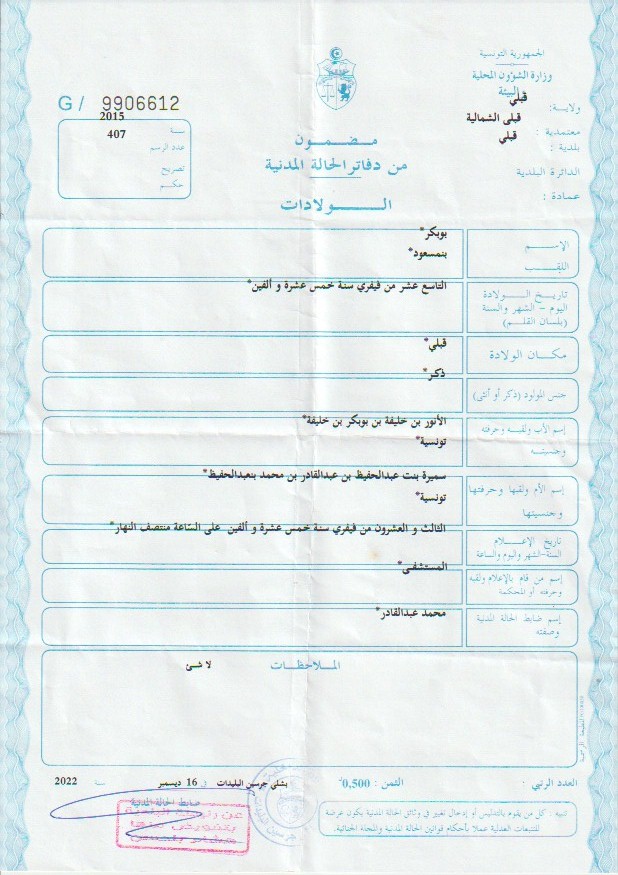 الجمهورية التونسية
وزارة الشؤون المحلية
والبيئة
ولاية: قبلي
معتمدية : قبلى الشمالية
بلدية : قبلي
الدائرة البلدية
عمادة :
G / 9906612
سنة 2015
عدد الرسم 407
تصريح
حكم
مضمون
من دفاتر الحالة المدنية
الولادات
الإسم بوبكر*
اللقب بنمسعود*
تاريخ الولادة
اليوم - الشهر والسنة
(بلسان القلم)
التاسع عشر من فيفري سنة خمس عشرة و ألفين*
مكان الولادة قبلي*
جنس المولود (ذكر أو أنثى) ذكر*
إسم الأب ولقبه وحرفته
وجنسيته
الأنور بن خليفة بن بوبكر بن خليفة*
تونسية*
إسم الأم ولقبها وحرفتها
وجنسيتها
سميرة بنت عبدالحفيظ بن عبدالقادر بن محمد بنعبدالحفيظ*
تونسية*
تاريخ الإعلام
السنة-الشهر واليوم والساعة
الثالث و العشرون من فيفري سنة خمس عشرة و ألفين على الساعة منتصف النهار*
إسم من قام بالإعلام ولقبه
وحرفته أو المحكمة
المستشفى*
إسم ضابط الحالة المدنية
وصفته
محمد عبدالقادر*
الملاحظات
لا شئ
العدد الرتبي :
الثمن : 0,500د
بشلي جرسين البليدات في 16 ديسمبر سنة 2022
ضابط الحالة المدنية
تنبيه : كل من يقوم بالتدليس أو إدخال تغيير في وثائق الحالة المدنية يكون عرضة
للتتبعات العدلية عملا بأحكام قوانين الحالة المدنية والمجلة الجنائية